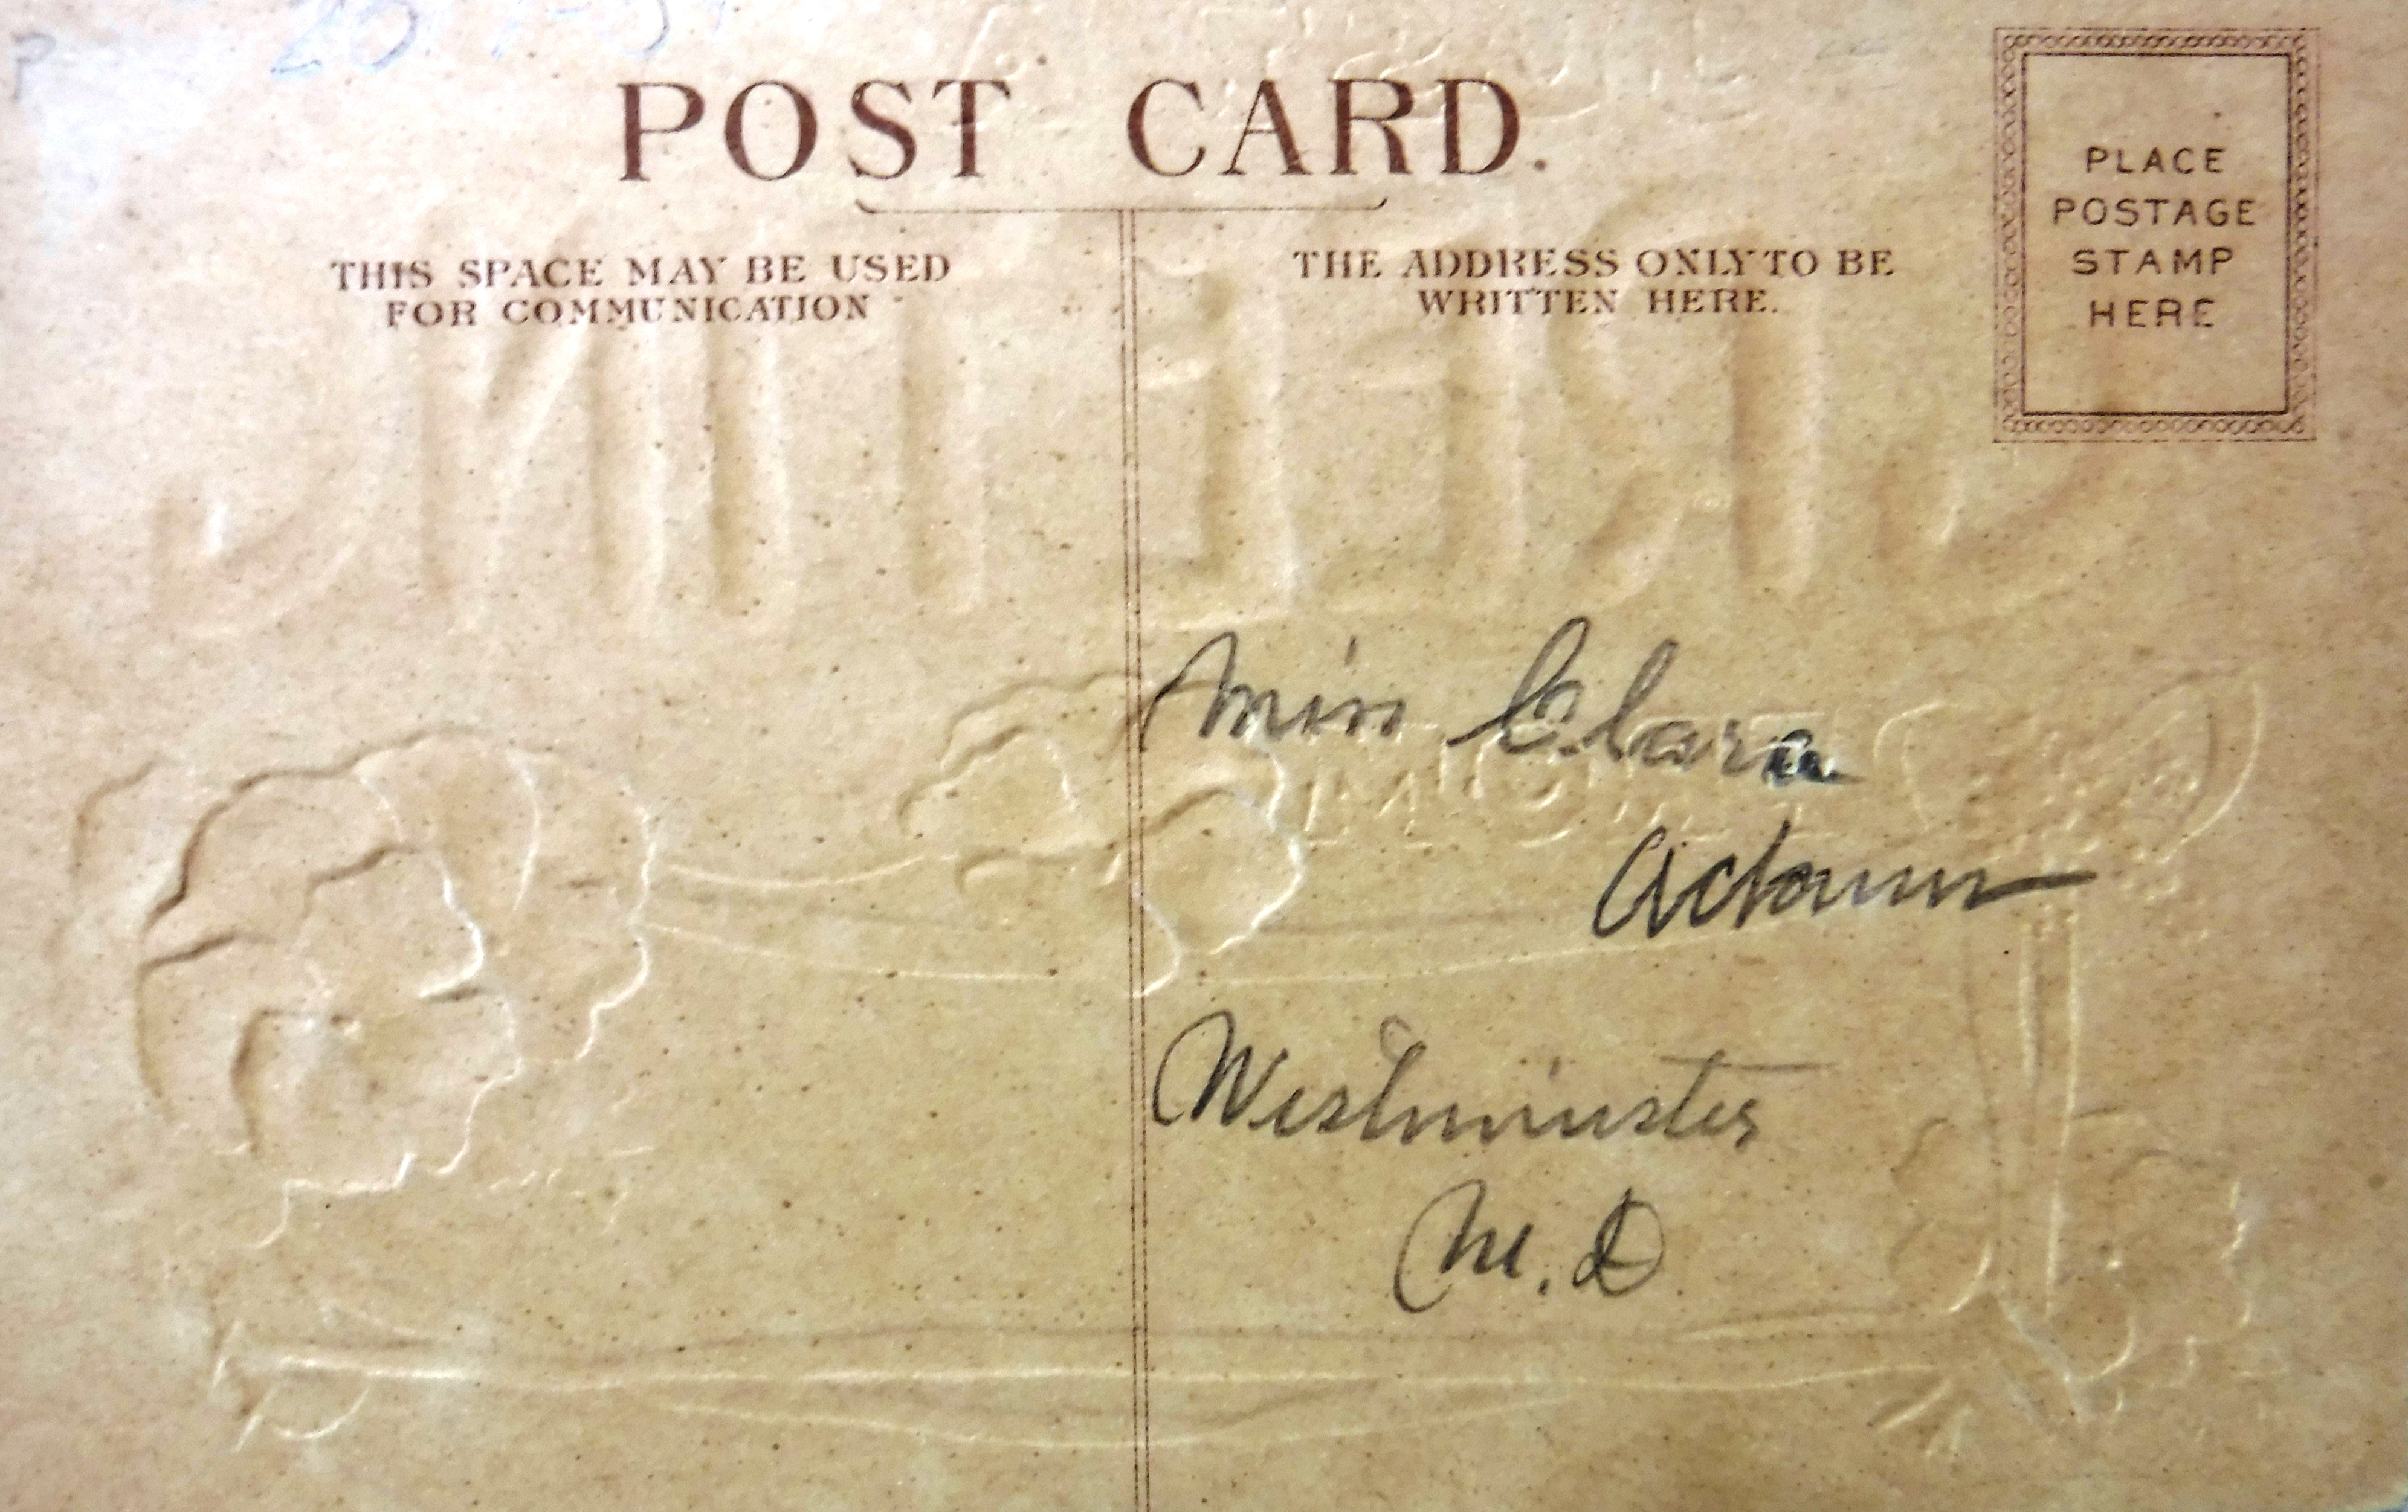 POST CARD.
THIS SPACE MAY BE USED
FOR COMMUNICATION
THE ADDRESS ONLY TO BE
WRITTEN HERE.
PLACE
POSTAGE
STAMP
HERE
Miss Clara
Adams
Westminster
M.D